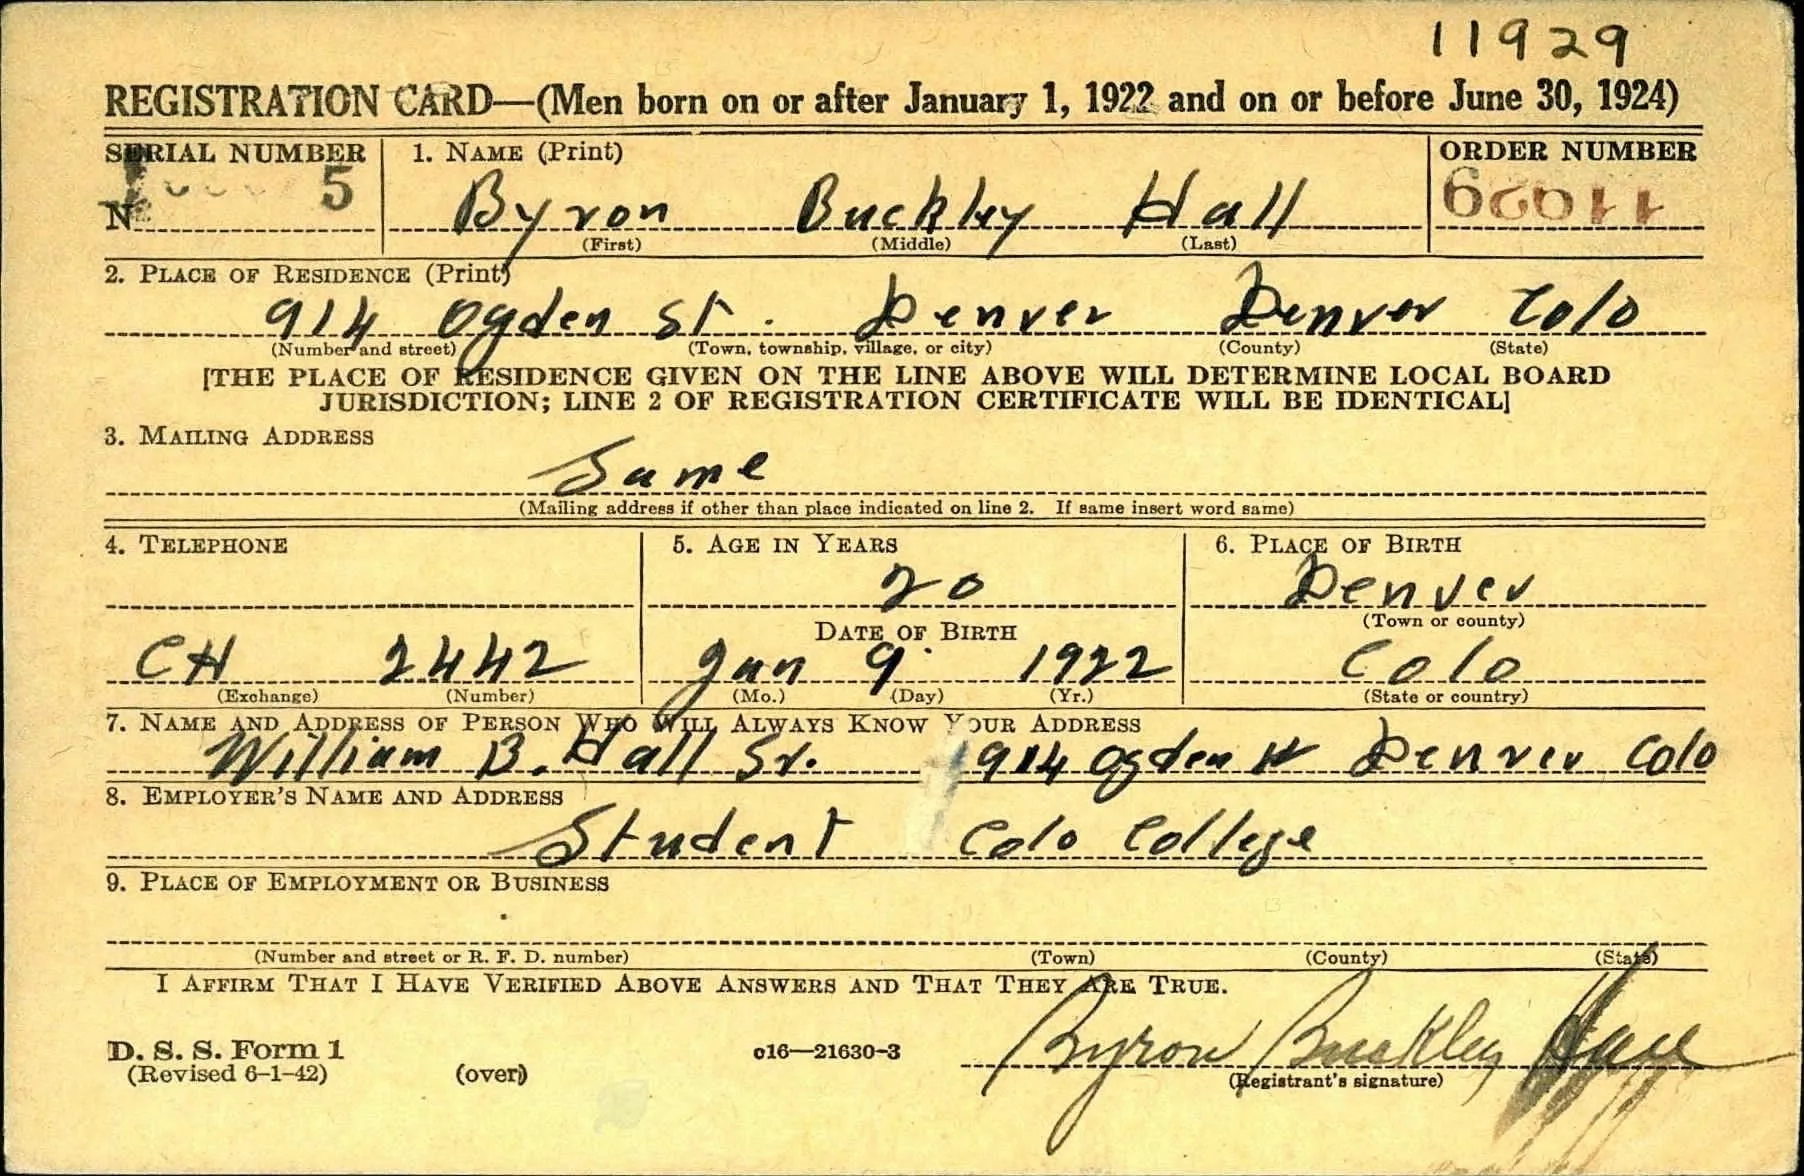 11929
REGISTRATION CARD—(Men born on or after January 1, 1922 and on or before June 30, 1924)
SERIAL NUMBER 1. NAME (Print) ORDER NUMBER
No 5 Byron Buckley Hall 11929
(First) (Middle) (Last)
2. PLACE OF RESIDENCE (Print)
914 Ogden St. Denver Denver Colo
(Number and street) (Town, township, village, or city) (County) (State)
[THE PLACE OF RESIDENCE GIVEN ON THE LINE ABOVE WILL DETERMINE LOCAL BOARD
JURISDICTION; LINE 2 OF REGISTRATION CERTIFICATE WILL BE IDENTICAL]
3. MAILING ADDRESS
Same
(Mailing address if other than place indicated on line 2. If same insert word same)
4. TELEPHONE 5. AGE IN YEARS 6. PLACE OF BIRTH
20 Denver
DATE OF BIRTH (Town or county)
CH 2442 Jan 9 1922 Colo
(Exchange) (Number) (Mo.) (Day) (Yr.) (State or country)
7. NAME AND ADDRESS OF PERSON WHO WILL ALWAYS KNOW YOUR ADDRESS
William B. Hall Sr. 914 Ogden St Denver Colo
8. EMPLOYER'S NAME AND ADDRESS
Student Colo College
9. PLACE OF EMPLOYMENT OR BUSINESS
(Number and street or R. F. D. number) (Town) (County) (State)
I AFFIRM THAT I HAVE VERIFIED ABOVE ANSWERS AND THAT THEY ARE TRUE.
D. S. S. Form 1 c16—21630-3 Byron Buckley Hall
(Revised 6-1-42) (over) (Registrant's signature)